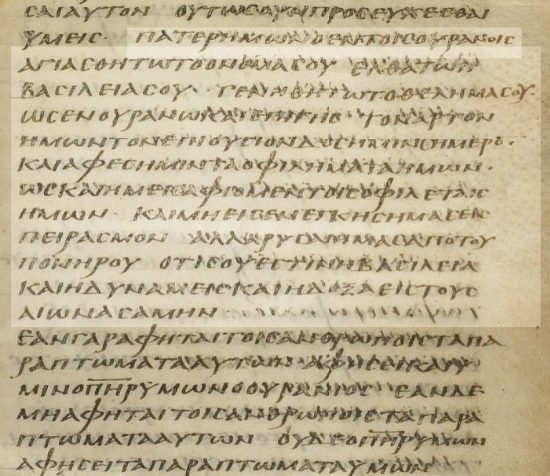 ϹΑΙΑΥΤΟΝ ΟΥΤΩϹΟΥΝΠΡΟϹΕΥΧΕϹΘΑΙ
ΥΜΕΙϹ· ΠΑΤΕΡΗΜΩΝΟΕΝΤΟΙϹΟΥΡΑΝΟΙϹ
ΑΓΙΑϹΘΗΤΩΤΟΟΝΟΜΑϹΟΥ ΕΛΘΑΤΩΗ
ΒΑϹΙΛΕΙΑϹΟΥ ΓΕΝΗΘΗΤΩΤΟΘΕΛΗΜΑϹΟΥ
ΩϹΕΝΟΥΡΑΝΩΚΑΙΕΠΙΓΗϹ ΤΟΝΑΡΤΟΝ
ΗΜΩΝΤΟΝΕΠΙΟΥϹΙΟΝΔΟϹΗΜΙΝϹΗΜΕΡΟ̅
ΚΑΙΑΦΕϹΗΜΙΝΤΑΟΦΙΛΗΜΑΤΑΗΜΩΝ·
ΩϹΚΑΙΗΜΕΙϹΑΦΙΟΜΕΝΤΟΙϹΟΦΙΛΕΤΑΙϹ
ΗΜΩΝ ΚΑΙΜΗΕΙϹΕΝΕΓΚΗϹΗΜΑϹΕΙϹ
ΠΕΙΡΑϹΜΟΝ ΑΛΛΑΡΥϹΑΙΗΜΑϹΑΠΟΤΟΥ
ΠΟΝΗΡΟΥ ΟΤΙϹΟΥΕϹΤΙΝΗΒΑϹΙΛΕΙΑ
ΚΑΙΗΔΥΝΑΜΕΙϹΚΑΙΗΔΟΞΑΕΙϹΤΟΥϹ
ΑΙΩΝΑϹΑΜΗΝ
ΕΑΝΓΑΡΑΦΗΤΑΙΤΟΙϹΑΝΘΡΩΠΟΙϹΤΑΠΑ
ΡΑΠΤΩΜΑΤΑΑΥΤΩΝ ΑΦΗϹΕΙΚΑΙΥ
ΜΙΝΟΠ̅Η̅Ρ̅ΥΜΩΝΟΟΥΡΑΝΙΟϹ ΕΑΝΔΕ
ΜΗΑΦΗΤΑΙΤΟΙϹΑΝΘΡΩΠΟΙϹΤΑΠΑΡΑ
ΠΤΩΜΑΤΑΑΥΤΩΝ ΟΥΔΕΟΠ̅Η̅Ρ̅ΥΜΩΝ
ΑΦΗϹΕΙΤΑΠΑΡΑΠΤΩΜΑΤΑΥΜΩΝ